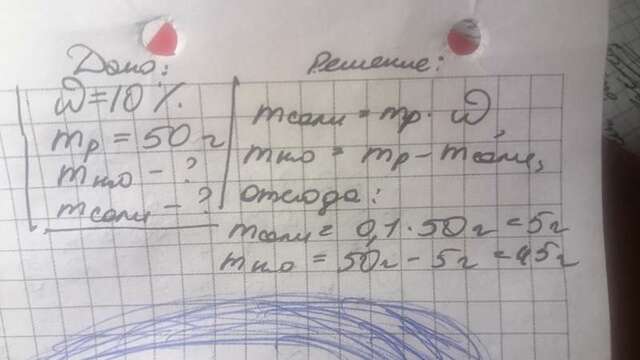 Дано:
ω=10%
mр = 50 г
mн₂о - ?
mсоли - ?
Решение:
mсоли = mр · ω,
mн₂о = mр - mсоли,
отсюда:
mсоли = 0,1 · 50г = 5г
mн₂о = 50г - 5г = 45г